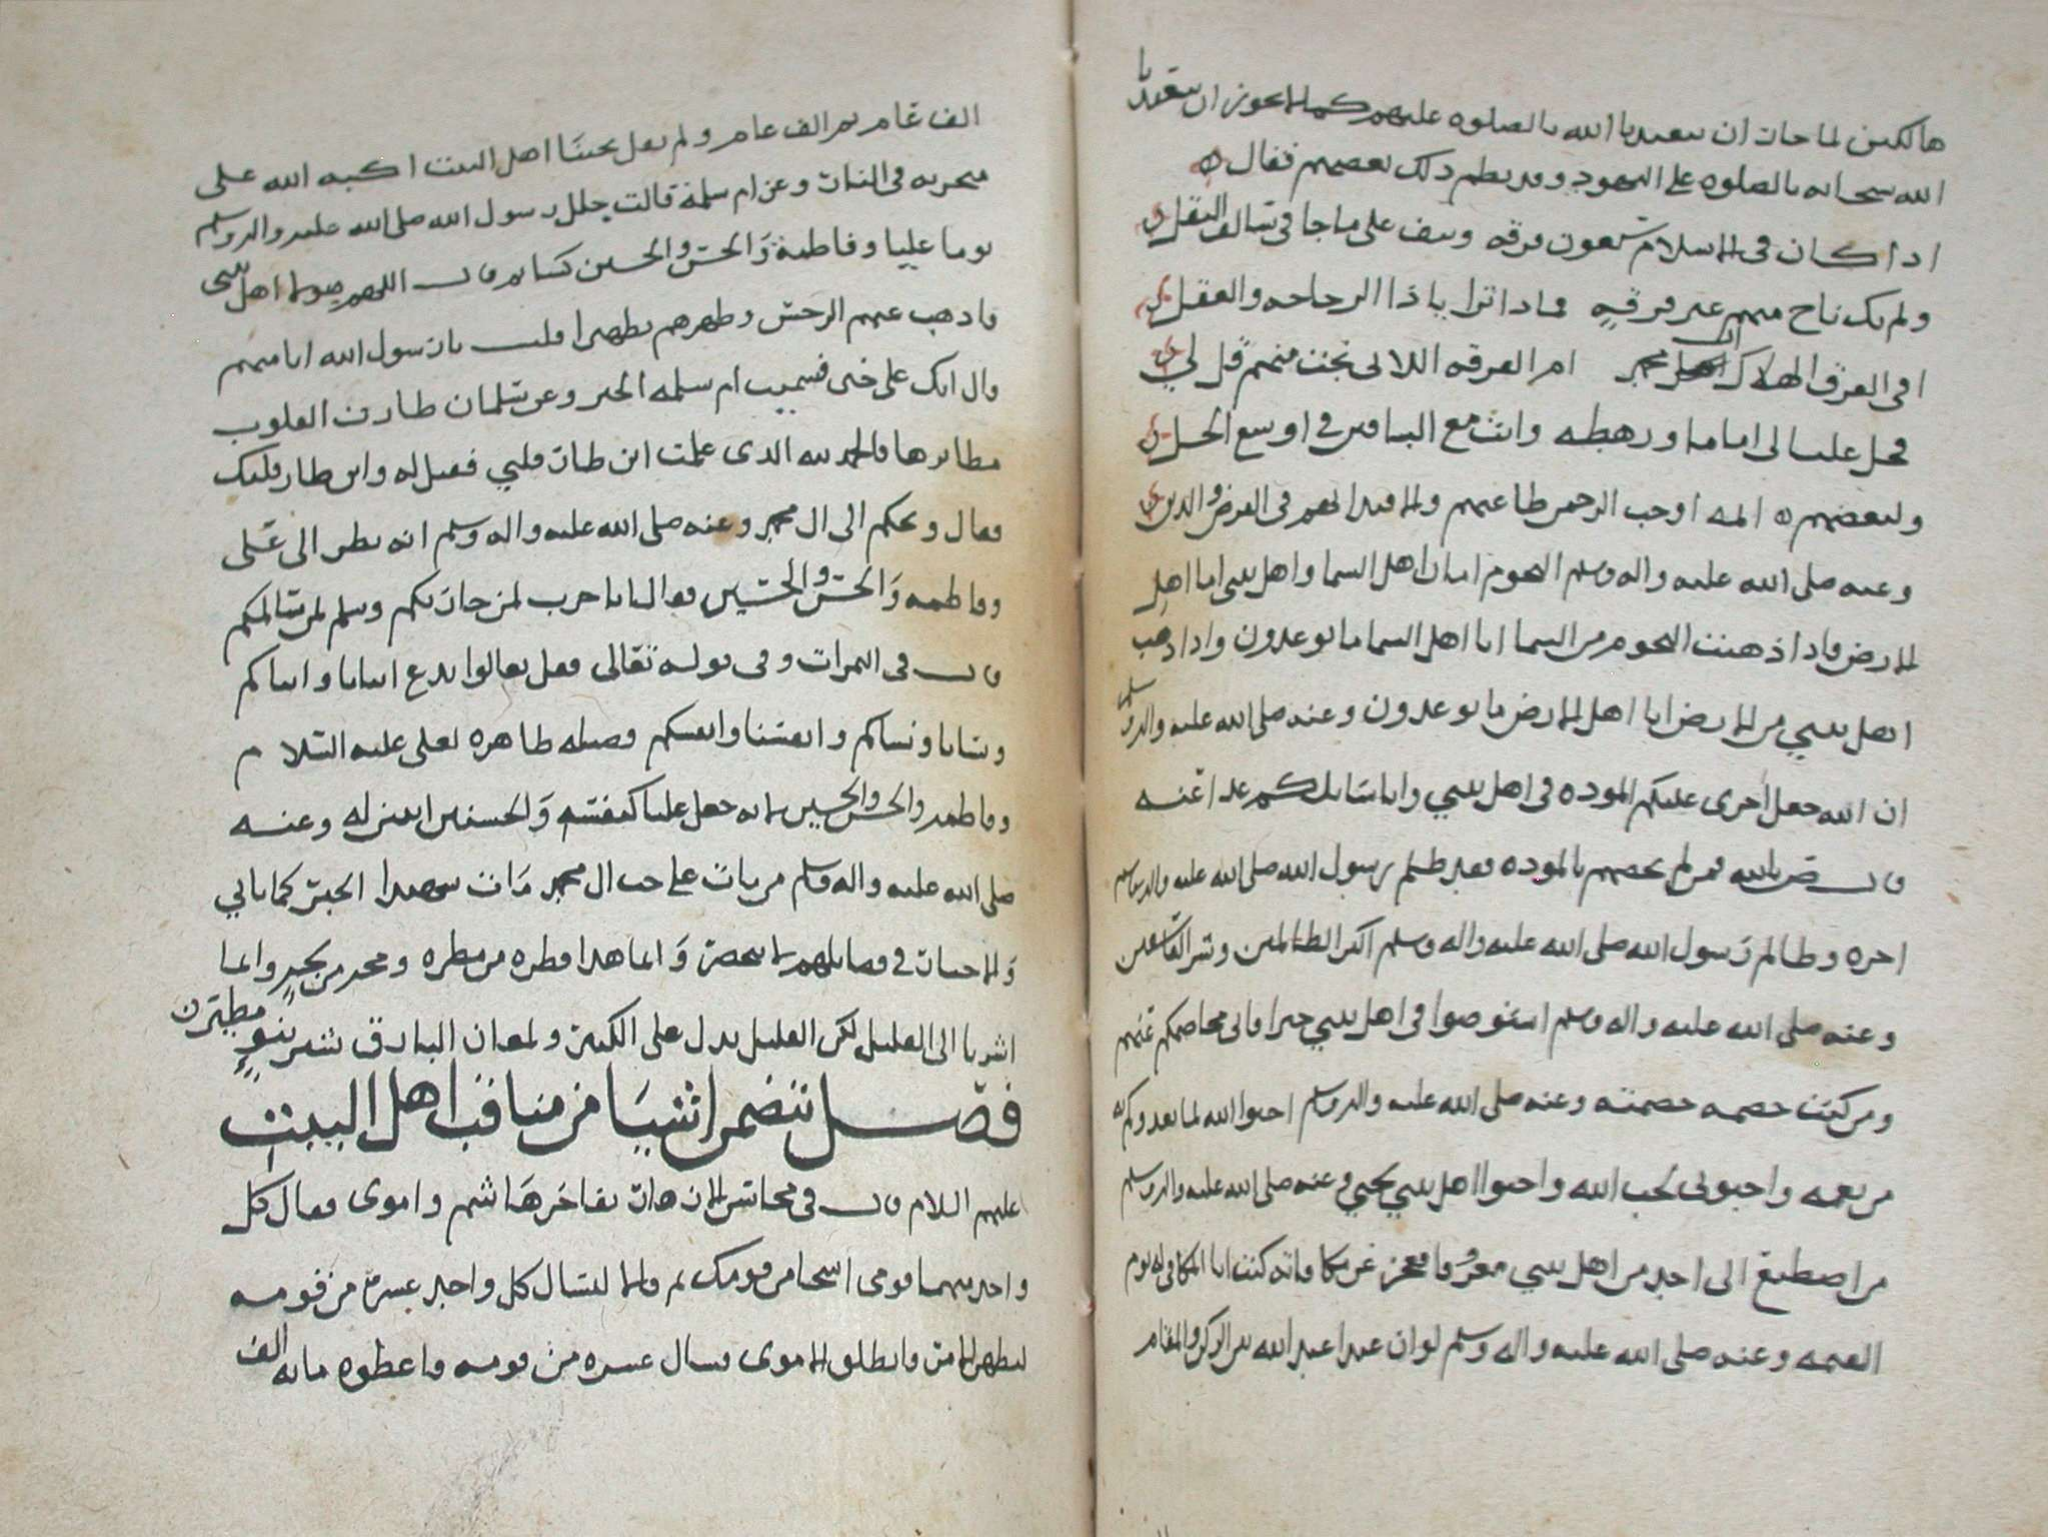 هالكين لما جاز ان يتعبدنا الله بالصلوه عليهم كما لا يجوز ان يتعبدنا
الله سبحانه بالصلوه على اليهود وقد نظم ذلك بعضهم فقال
اذا كان في الاسلام سبعون فرقه ونيف على ما جا في سالف النقل
ولم يك ناج منهم غير فرقةٍ فماذا ترا يا ذا الرجاحه والعقل
افي الفرق الهلاك ال محمد ام الفرقه اللاتي نجت منهم قل لي
فخل عليا لي اماما ورهطه وانت مع الباقين في اوسع الحل
ولبعضهم المه اوجب الرحمن طاعتهم ولا فيد الهم في الفرض والدين
وعنه صلى الله عليه واله وسلم النجوم امان اهل السما واهل بيتي امان اهل
الارض فاذا ذهبت النجوم من السما اتا اهل السما ما يوعدون واذا ذهب
اهل بيتي من الارض اتا اهل الارض ما يوعدون وعنه صلى الله عليه واله وسلم
ان الله جعل اجري عليكم الموده في اهل بيتي وانا سايلكم غدا عنه
قال ض بالله فمن لم يخصهم بالموده فقد ظلم رسول الله صلى الله عليه واله وسلم
اجره وظالم رسول الله صلى الله عليه واله وسلم اكبر الظالمين وشر الفاسقين
وعنه صلى الله عليه واله وسلم استوصوا في اهل بيتي خيرا فاني مخاصمكم عنهم
ومن كنت خصمه خصمته وعنه صلى الله عليه واله وسلم احبوا الله لما يغدوكم به
من نعمه واحبوني لحب الله واحبوا اهل بيتي لحبي وعنه صلى الله عليه واله وسلم
من اصطنع الى احد من اهل بيتي معروفا فعجز عن مكافاته كنت انا المكافي له يوم
القيمه وعنه صلى الله عليه واله وسلم لو ان عبدا عبد الله بين الركن والمقام
الف عام ثم الف عام ولم يقل بحبنا اهل البيت اكبه الله على
منخريه في النار وعن ام سلمة قالت جلل رسول الله صلى الله عليه واله وسلم
يوما عليا وفاطمة والحسن والحسين كسا ثم قال اللهم هولا اهل بيتي
فاذهب عنهم الرجس وطهرهم تطهيرا قلت يا رسول الله انا منهم
قال انك على خير فسميت ام سلمه الخير وعن سلمان طارت القلوب
مطايرها فالحمد لله الذي علمت اين طار قلبي فقيل له واين طار قلبك
فقال ويحكم الى ال محمد وعنه صلى الله عليه واله وسلم انه نظر الى على
وفاطمه والحسن والحسين فقال انا حرب لمن حاربكم وسلم لمن سالمكم
قال في الثمرات وفي قوله تعالى فقل تعالوا ندع ابنانا وابناكم
ونسانا ونساكم وانفسنا وانفسكم فضيله ظاهره لعلى عليه السلام
وفاطمه والحسن والحسين لانه جعل عليا كنفسه والحسنين ابنين له وعنه
صلى الله عليه واله وسلم من مات على حب ال محمد مات شهيدا الخبر كما ياتي
والاخبار في فضايلهم لا تنحصر وانما هذا قطره من مطره ومجه من بحر وانما
اشرنا الى القليل لكن القليل يدل على الكثير ولمعان البارق تنبي بنوء مطير
فصل نتضمن اشيا من مناقب اهل البيت
عليهم السلام قال في محاسن الازهار تفاخر هاشمي واموي فقال كل
واحد منهما قومي اسخا من قومك ثم قالا ليسال كل واحد عشرة من قومه
ليظهر الامر فانطلق الاموي فسال عشره من قومه فاعطوه مايه الف